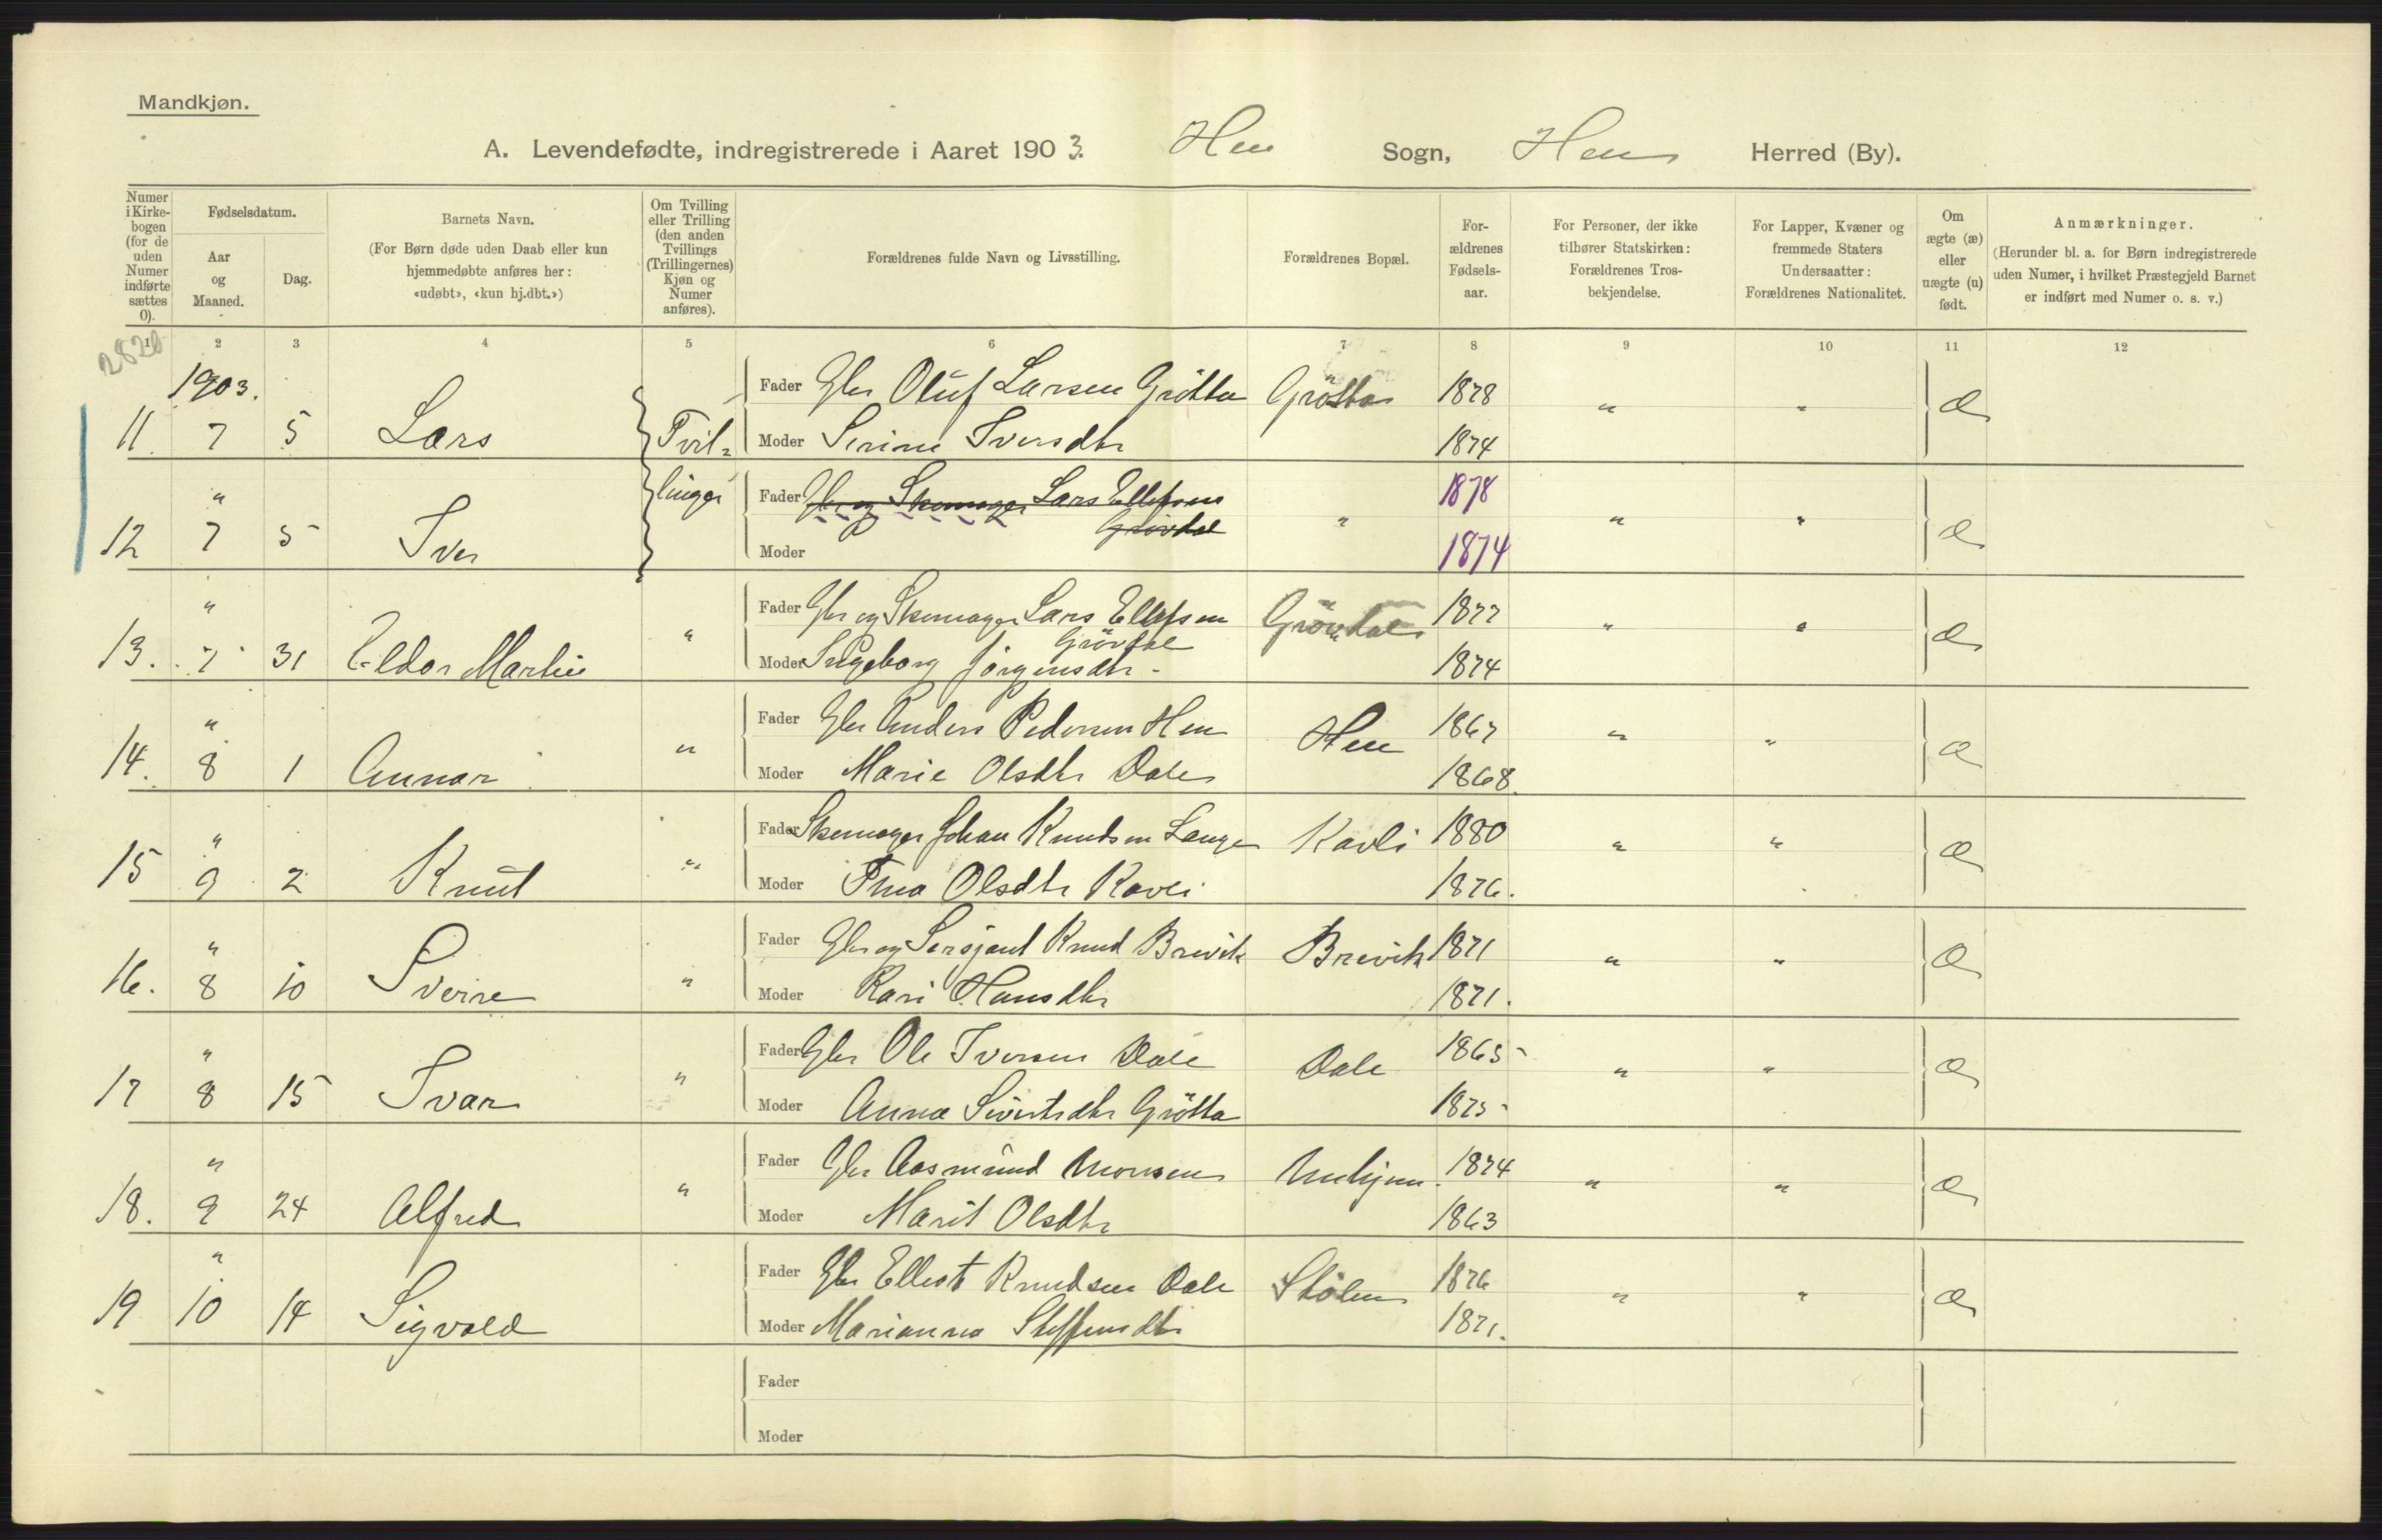 Mandkjøn.
A. Levendefødte, indregistrerede i Aaret 1903. Hen Sogn, Hen Herred (By).
Numer i Kirkebogen (for de uden Numer indførte sættes 0).
Fødselsdatum.
Aar og Maaned.
Dag.
Barnets Navn.
(For Børn døde uden Daab eller kun hjemmedøbte anføres her: «udøbt», «kun hj.dbt.»)
Om Tvilling eller Trilling (den anden Tvillings (Trillingernes) Kjøn og Numer anføres).
Forældrenes fulde Navn og Livsstilling.
Forældrenes Bopæl.
Forældrenes Fødselsaar.
For Personer, der ikke tilhører Statskirken: Forældrenes Trosbekjendelse.
For Lapper, Kvæner og fremmede Staters Undersaatter: Forældrenes Nationalitet.
Om ægte (æ) eller uægte (u) født.
Anmærkninger.
(Herunder bl. a. for Børn indregistrerede uden Numer, i hvilket Præstegjeld Barnet er indført med Numer o. s. v.)
1 2 3 4 5 6 7 8 9 10 11 12
1903.
Fader Gbr Oluf Larsen Grötta Grötta 1878 " " æ
11. 7 5 Lars Tvil= Moder Serine Iversdtr 1874
" linger Fader Gbr og Skomager Lars Ellefsen Grövdal " 1878 " " æ
12 7 5 Iver Moder 1874
" " Fader Gbr og Skomager Lars Ellefsen Grövdal Grövdal 1877 " " æ
13. 7 31 Eldor Martin Moder Ingeborg Jörgensdtr - 1874
" " Fader Gbr Anders Pedersen Hen Hen 1867 " " æ
14. 8 1 Annar Moder Marie Olsdtr Dale 1868.
" " Fader Skomager Johan Knudsen Lange Kavli 1880 " " æ
15 9 2 Knut Moder Olsdtr Kavli 1876.
" " Fader Gbr og Sersjant Knud Brevik Brevik 1871 " " æ
16. 8 10 Sverre Moder Kari Hansdtr 1871.
" " Fader Gbr Ole Iversen Dale Dale 1865 " " æ
17 8 15 Ivar Moder Anna Sivertsdtr Grötta 1875
" " Fader Gbr Aasmund Monsen Unhjem 1874 " " æ
18. 9 24 Alfred Moder Marit Olsdtr 1863
" Fader Gbr Knudsen Dale Stölen 1876 " " æ
19 10 14 Sigvald Moder Marianna Steffensdtr 1871.
Fader
Moder